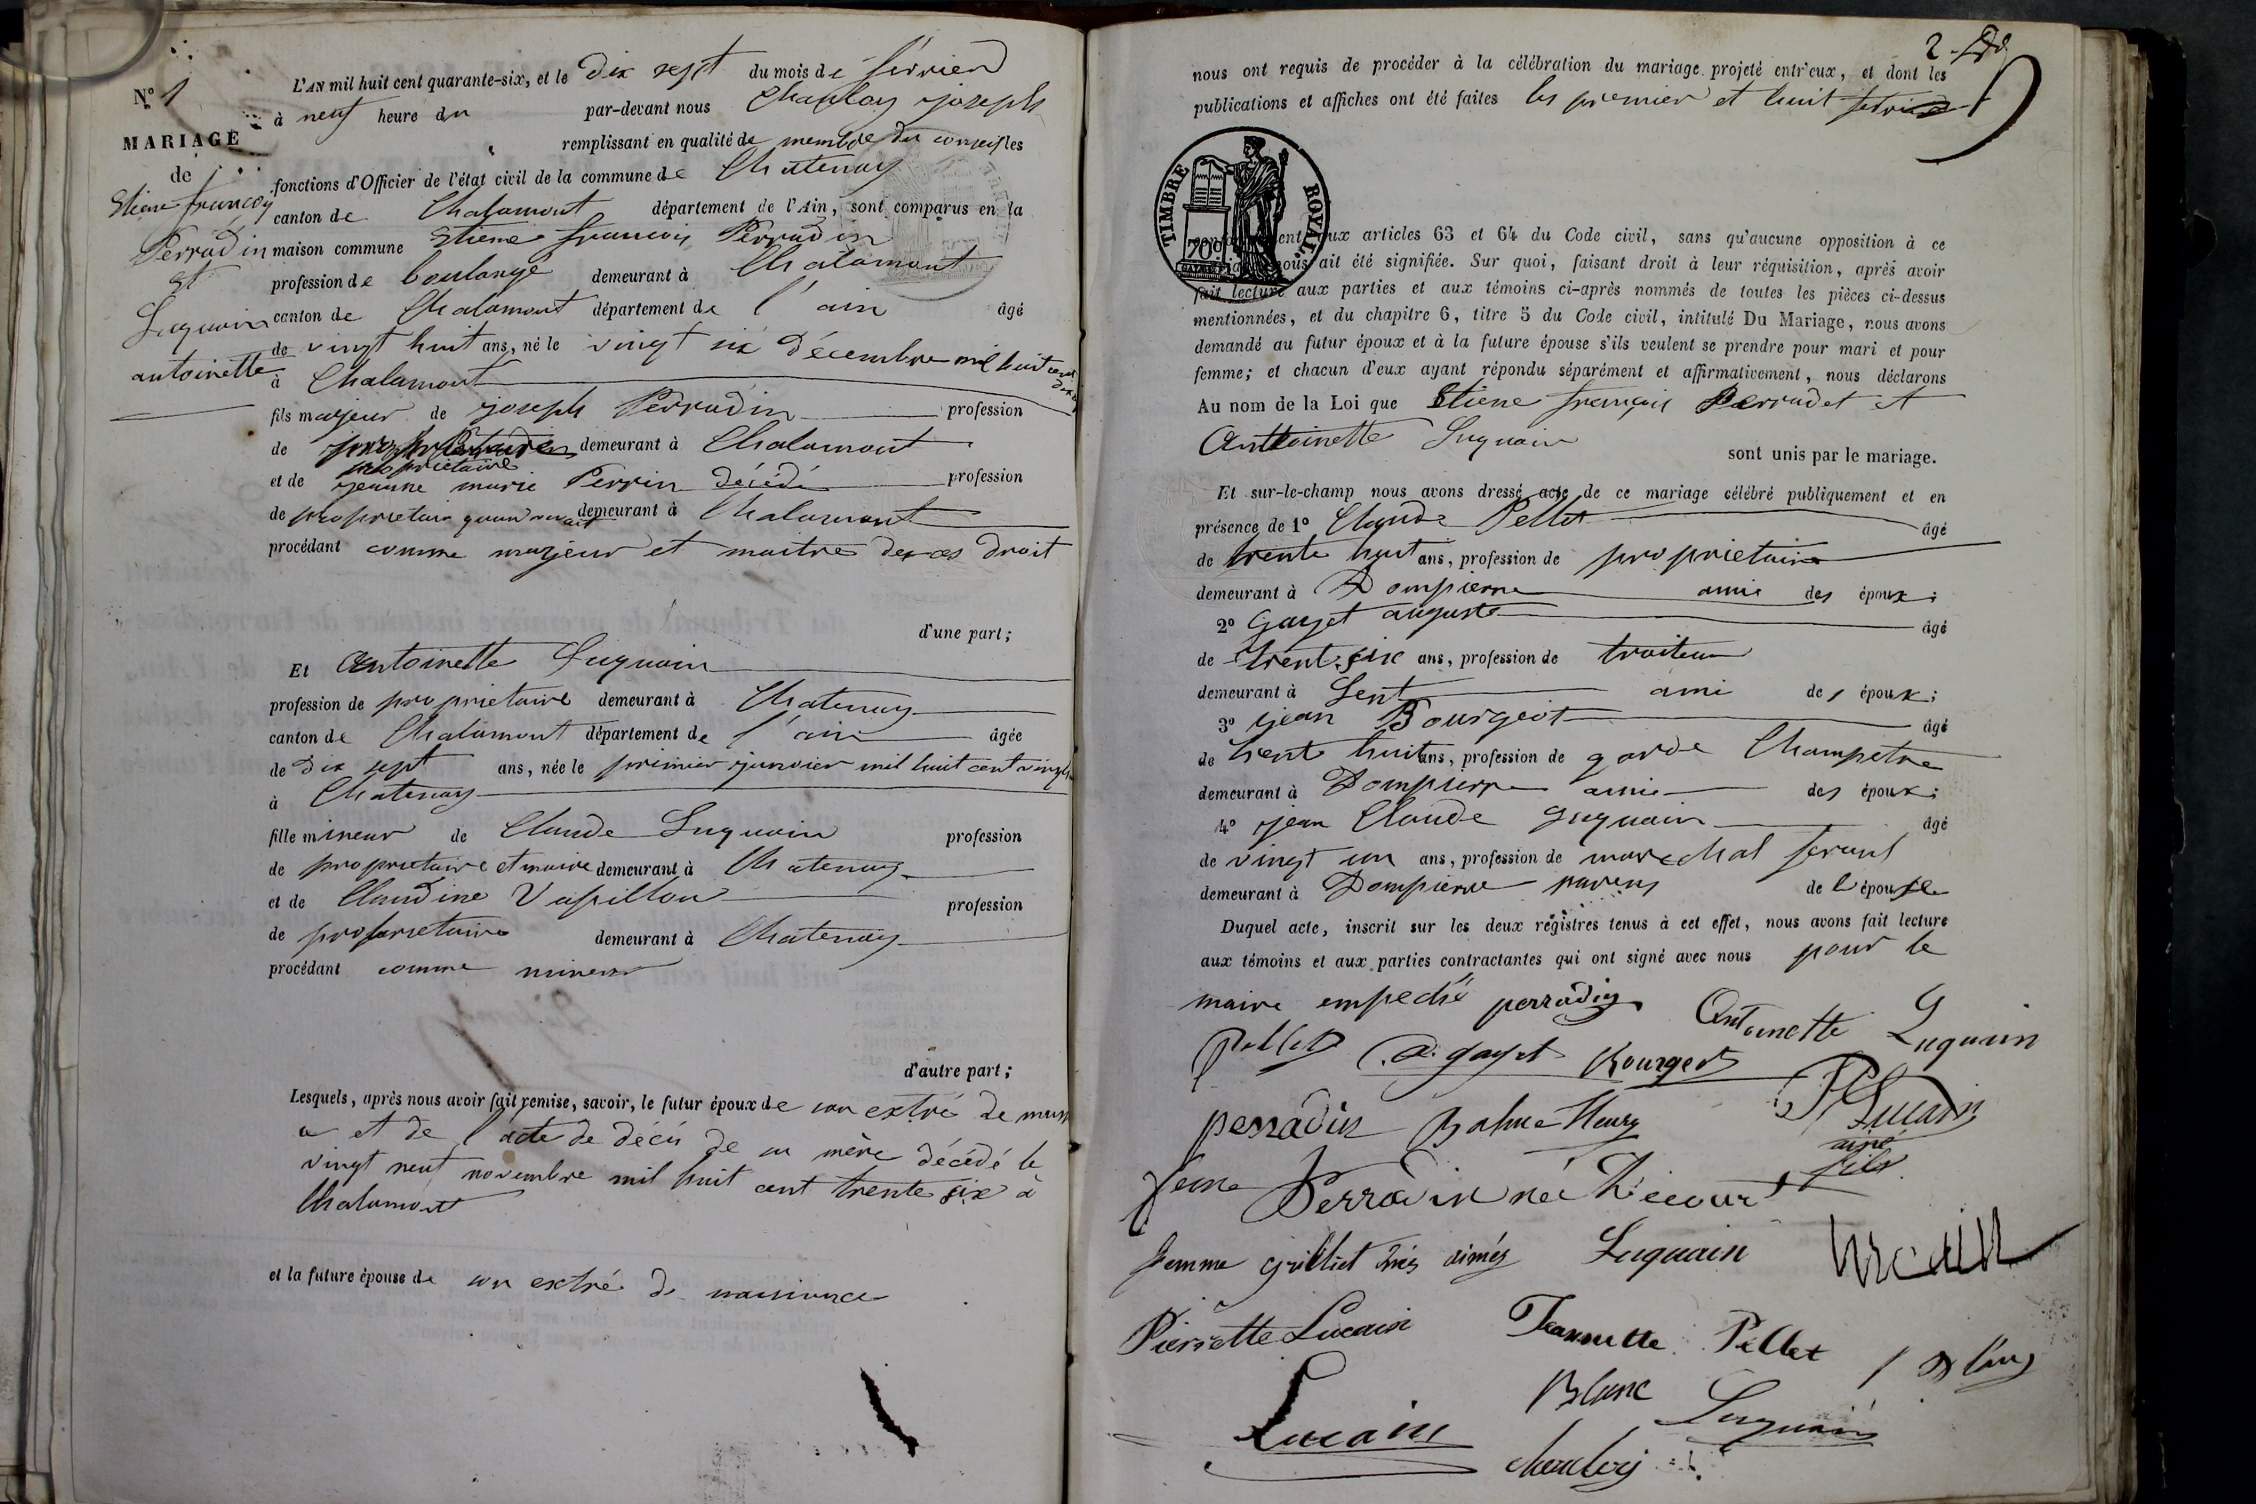 N° 1
MARIAGE
de
Etiene françoy
Perradin
et
Luquain
antoinette
L'AN mil huit cent quarante-six, et le dix sept du mois de févried
à neuf heure du par-devant nous joseph
remplissant en qualité de membre du conseil les
fonctions d'Officier de l'état civil de la commune de Chatenay
canton de Chalamont département de l'Ain, sont comparus en la
maison commune Etiene francois Perradin
profession de boulange demeurant à Chalamont
canton de Chalamont département de l'ain âgé
de vingt huit ans, né le vingt six décembre mil huit cent
à Chalamont
fils majeur de joseph Perradin profession
de demeurant à Chalamont
propriétaire
et de jeanne marie Perrin décédé profession
de proprietaire demeurant à Chalamont
procédant comme majeur et maitre de ces droit
d'une part;
Et Antoinette Luquain
profession de proprietaire demeurant à Chatenay
canton de Chalamont département de l'ain âgée
de dix sept ans, née le primier janvier mil huit cent vingt
à Chatenay
fille mineur de Claude Luquain profession
de proprietaire et maire demeurant à Chatenay
et de Claudine Vapillon profession
de proprietaire demeurant à Chatenay
procédant comme mineur
d'autre part;
Lesquels, après nous avoir fait remise, savoir, le futur époux de son extré de
et de l'acte de décès de sa mère décédé le
vingt neuf novembre mil huit cent trente six à
Chalamont
et la future épouse de son extré de naisiance
2
nous ont requis de procéder à la célébration du mariage projeté entr'eux, et dont les
publications et affiches ont été faites les premier et huit
TIMBRE ROYAL
70
conformément aux articles 63 et 64 du Code civil, sans qu'aucune opposition à ce
mariage nous ait été signifiée. Sur quoi, faisant droit à leur réquisition, après avoir
fait lecture aux parties et aux témoins ci-après nommés de toutes les pièces ci-dessus
mentionnées, et du chapitre 6, titre 5 du Code civil, intitulé Du Mariage, nous avons
demandé au futur époux et à la future épouse s'ils veulent se prendre pour mari et pour
femme; et chacun d'eux ayant répondu séparément et affirmativement, nous déclarons
Au nom de la Loi que Etiene françois Perradet et
Anttoinette Luquain sont unis par le mariage.
Et sur-le-champ nous avons dressé acte de ce mariage célébré publiquement et en
présence de 1° Claude Pellet âgé
de trente huit ans, profession de proprietaire
demeurant à Dompierre amie des époux;
2° Gayet auguste âgé
de trent six ans, profession de traiteur
demeurant à Lent ami des époux;
3° jean Bourgeot âgé
de trent huit ans, profession de garde Champetre
demeurant à Dompierre amie des époux;
4° jean Claude Luquain âgé
de vingt un ans, profession de marechal ferant
demeurant à Dompierre parens de l'épouse
Duquel acte, inscrit sur les deux régistres tenus à cet effet, nous avons fait lecture
aux témoins et aux parties contractantes qui ont signé avec nous pour le
maire empeché perradin Antoinette Luquain
Pellet A. gayet Bourgeot
perradin Henry P Lucain
ainé
fils
feme Perradin née Ricour
femme Luquain Lucain
Pierrette Lucain Jeannette Pellet
Blanc
Lucain Luquain